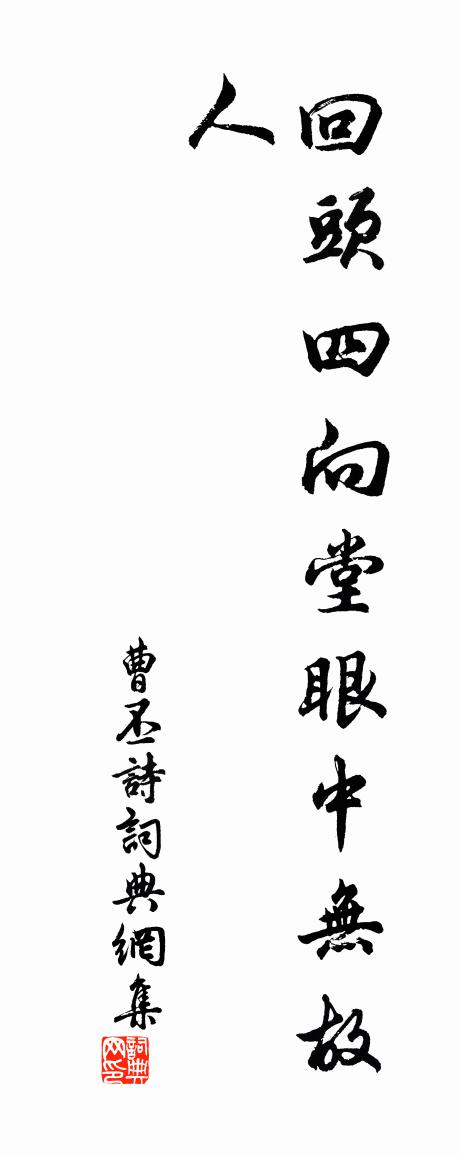 回頭四向堂眼中無故
人
曹丕詩詞典網集
詞典
网印